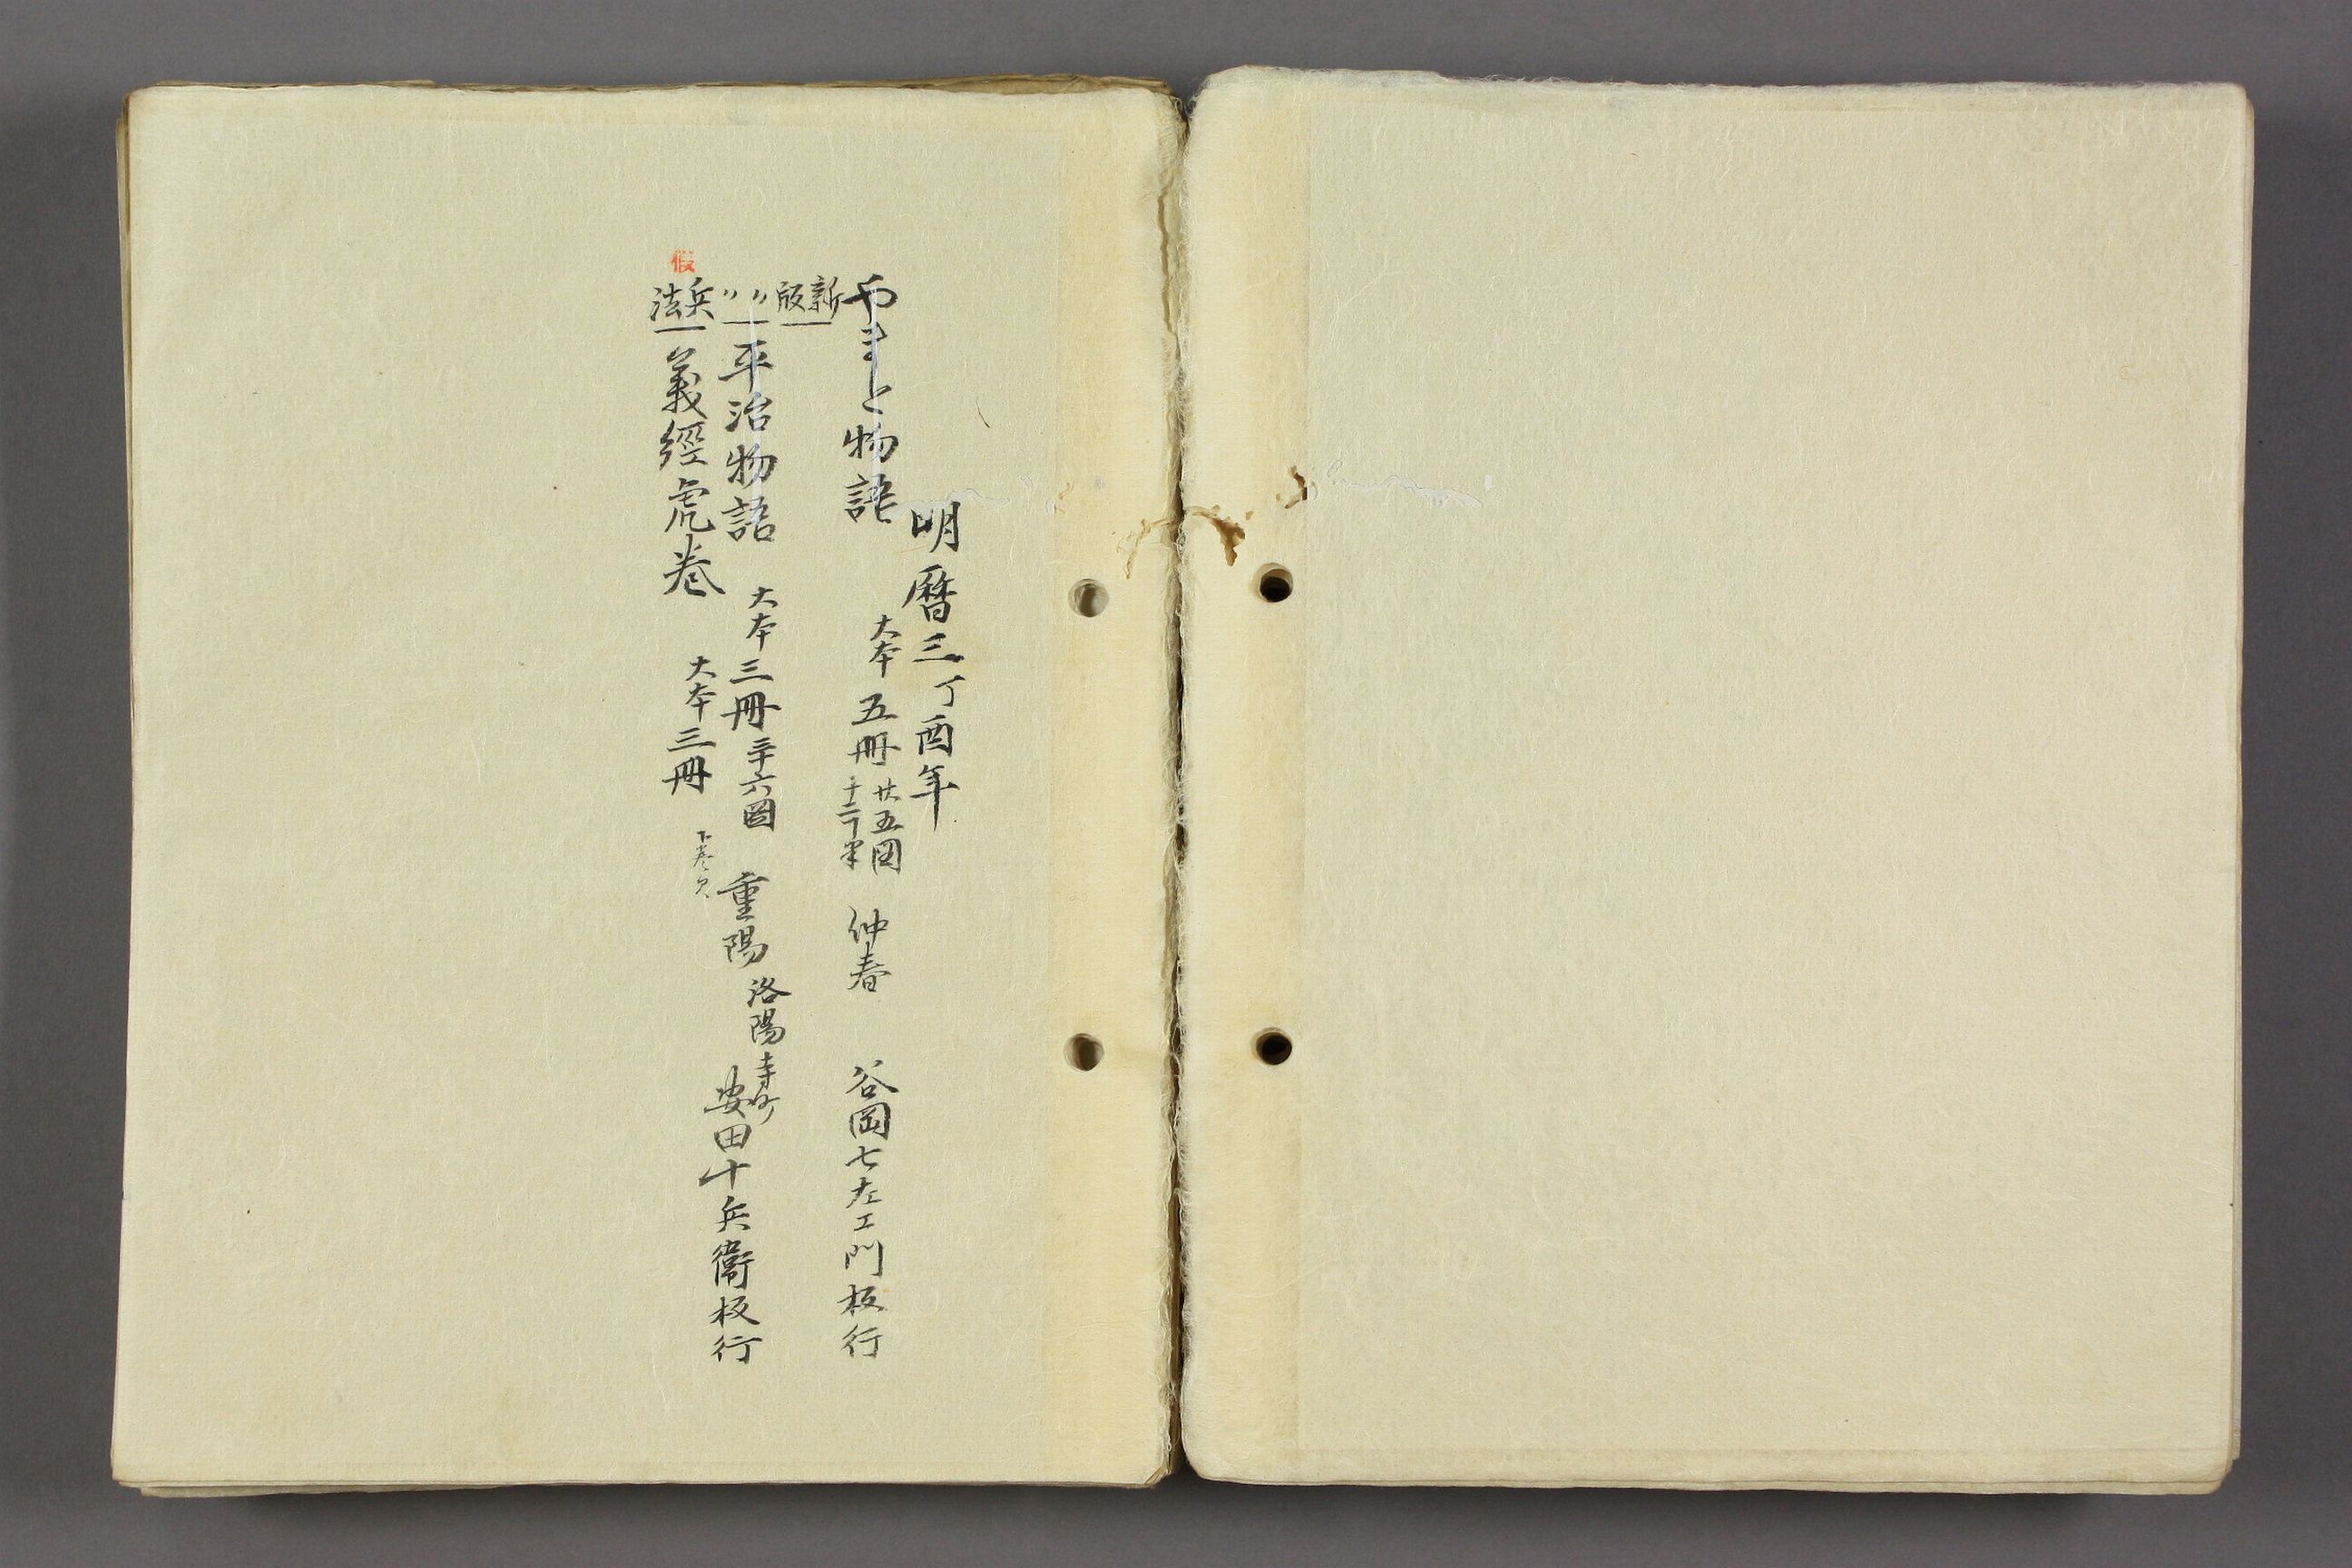 明暦三丁酉年
やまと物語 大本 五冊 廿五図 十二行本 仲春 谷岡七左エ門板行
新版
〃〃 平治物語 大本 三冊 三十六図 重陽 洛陽寺町 安田十兵衞板行
假
兵法 義經虎巻 大本 三冊 下巻欠